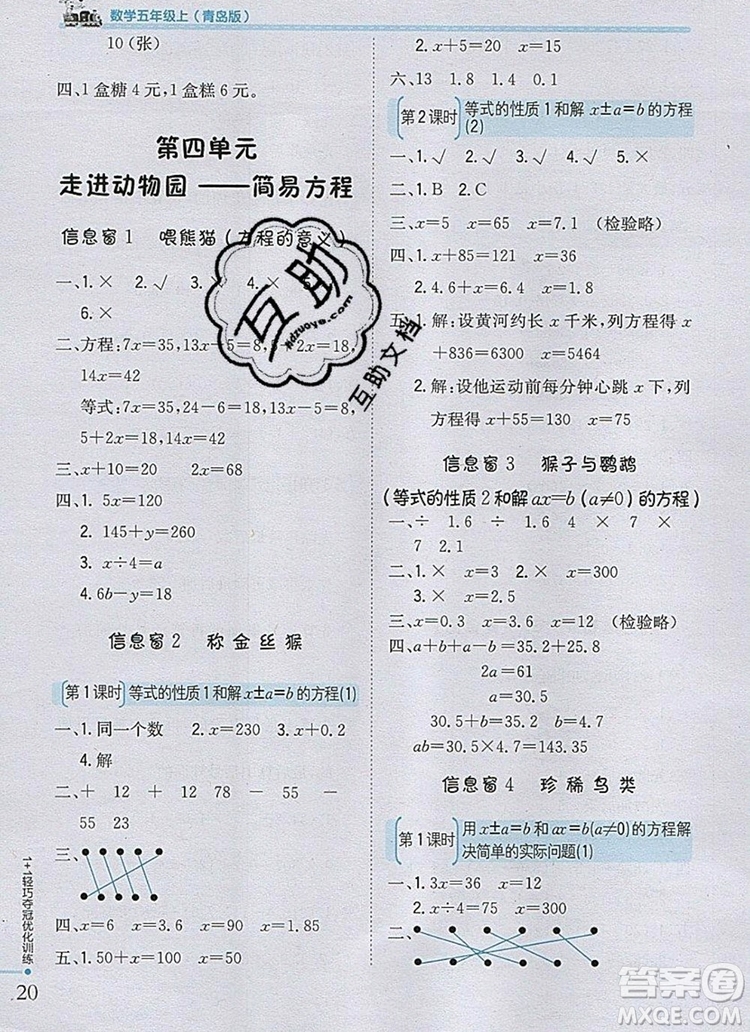 数学五年级上（青岛版）
10（张）
四、1盒糖4元，1盒糕6元。
第四单元
走进动物园 ——简易方程
信息窗1 喂熊猫（方程的意义）
一、1.× 2.√ 3.× 4.× 5.
6.×
二、方程：7x=35，13x=5=8，5+2x=18，
14x=42
等式：7x=35，24-6=18，13x-5=8，
5+2x=18，14x=42
三、x+10=20 2x=68
四、1. 5x=120
2. 145+y=260
3. x÷4=a
4.6b-y=18
信息窗2 称金丝猴
第1课时 等式的性质1和解x±a=b的方程(1)
一、1.同一个数 2.x=230 3.x+0.2
4.解
二、+ 12 + 12 - 55 -
55 23
三、
四、x=6 x=3.6 x=90 x=1.85
五、1.50+x=100 x=50
2. x+5=15 x=10
六、13 1.8 1.4 0.1
第2课时 等式的性质1和解 x±a=b的方程
(2)
一、1.√ 2.√ 3.√ 4.√ 5.×
二、1.B 2.C
三、x=5 x=65 x=7.1（检验略）
四、1.x+85=121 x=36
2.4.6+x=10 x=5.4
五、1.解：设黄河约长 x 千米，列方程得x
+836=6300 x=5464
2.解：设他运动前每分钟心跳 x 下，列
方程得x+55=130 x=75
信息窗3 猴子与鹦鹉
（等式的性质2和解ax=b（a≠0）的方程）
一、÷ 1.6 ÷ 1.6 × 4 × 7 ×
7 2.1
二、1.× x=4 2.× x=300
3.× x=2.5
三、x=0.3 x=3.6 x=12（检验略）
四、a+a-35.2=35.2+25.8
2a=61
a=30.5
b=30.5÷6.5=4.7
ab=30.5×4.7=143.35
信息窗4 珍稀鸟类
第1课时 用x±a=b和ax=b(a≠0)的方程解
决简单的实际问题(1)
一、1.3x=36 x=12
2.x÷4=75 x=300
二、
1+1轻巧夺冠优化训练
20
互助
hdzuoye.com
互助文档
答案圈
MXQE.COM